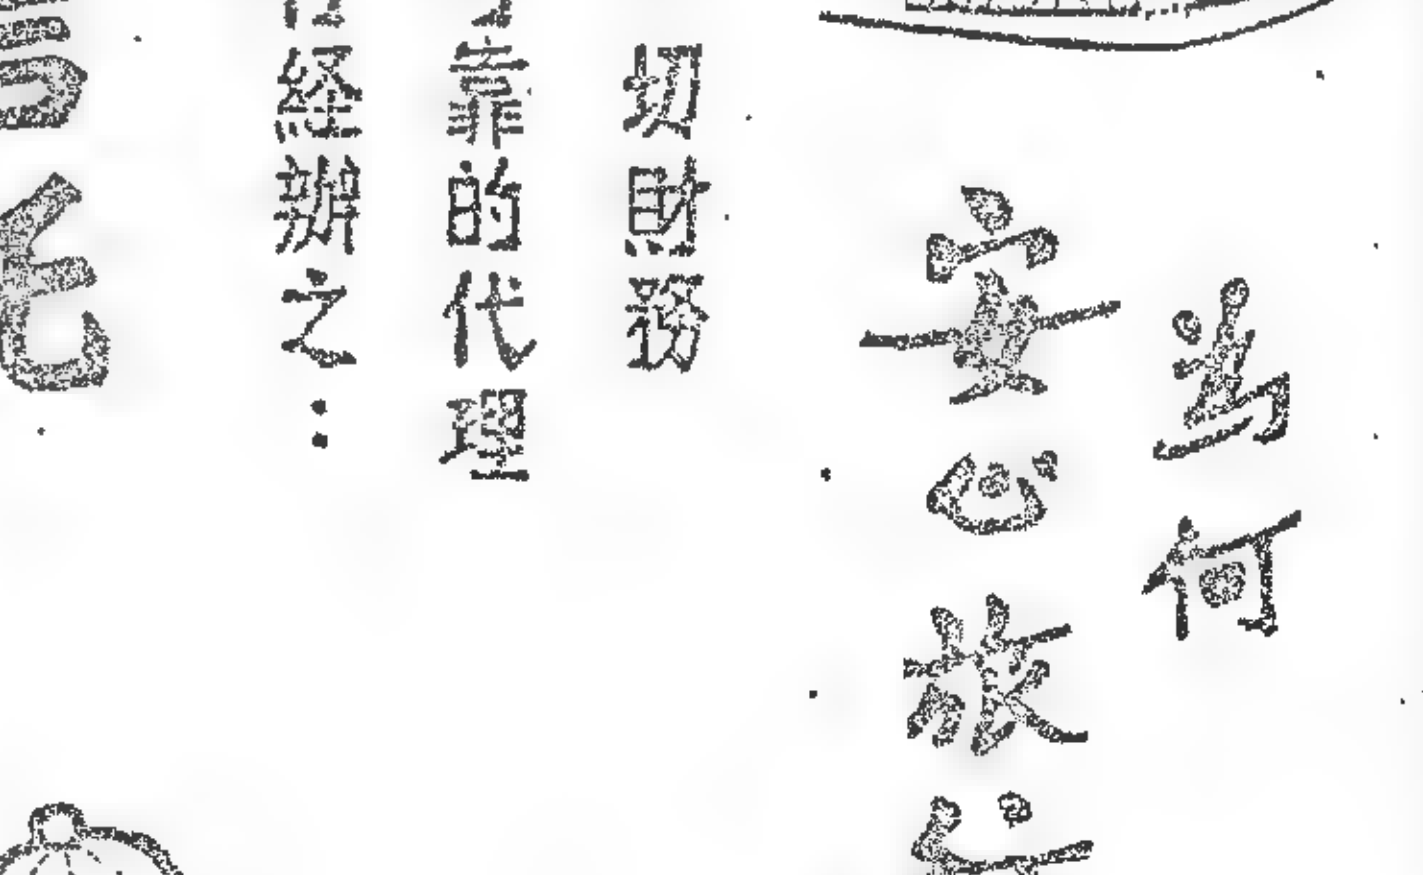 為何
安心旅
切財務
靠的代理
经辦之：